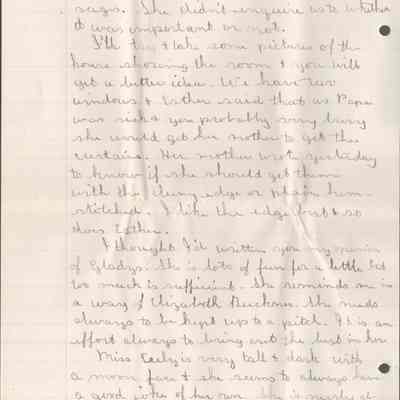 says. She didn't enquire as to whether
it was important or not.
I'll try & take some pictures of the
house showing the room & you will
get a better idea. We have two
windows & Esther said that as Papa
was sick & you probably very busy
she would get her mother to get the
curtains. Her mother wrote yesterday
to know if she should get them
with the edge or plain hem-
stitched. I like the edge best & so
does Esther.
I thought I'd written you my opinion
of Gladys. She is lots of fun for a little but
too much is sufficient. She reminds me in
a way of Elizabeth. She needs
always to be kept up to a pitch. It is an
effort always to bring out the best in her.
Miss is very tall & dark with
a moon face & she seems to always have
a good joke of her own. She is